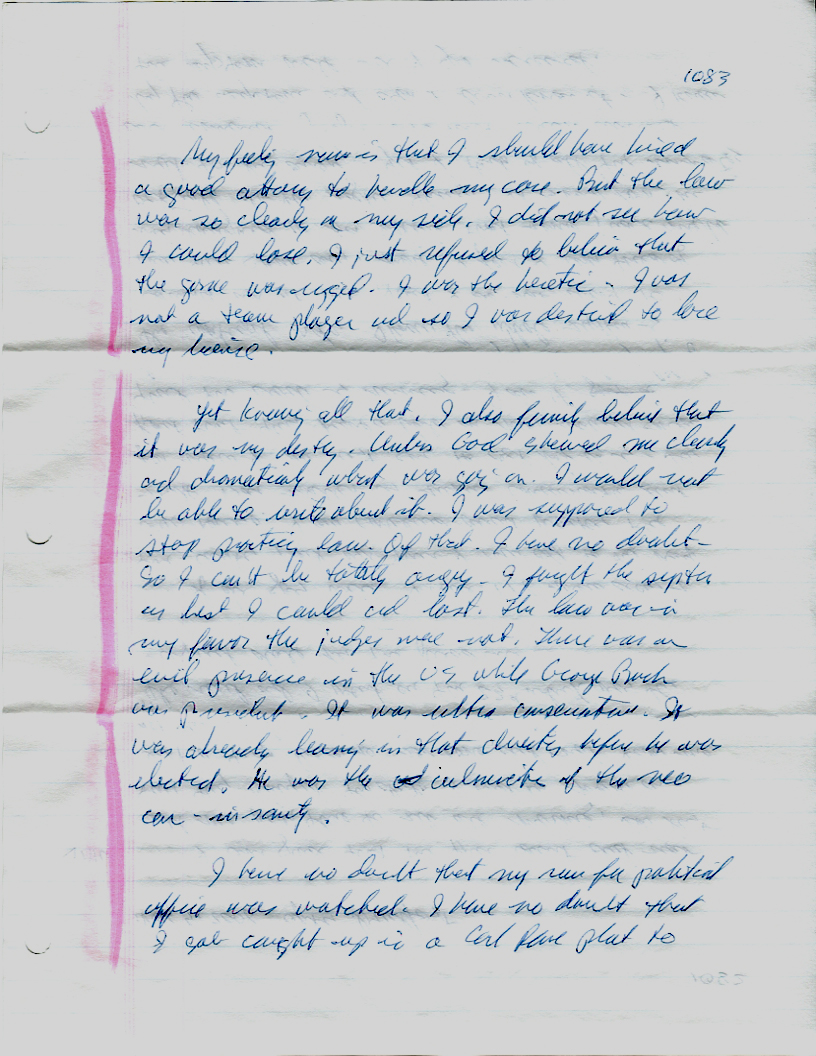 1083
My feeling now is that I should have hired
a good attorny to handle my case. But the law
was so clearly on my side. I did not see how
I could lose. I just refused to believe that
the game was rigged. I was the heretic - I was
not a team player and so I was destined to lose
my license.
Yet knowing all that. I also firmly believe that
it was my destiny. Unless God showed me clearly
and dramatically what was going on. I would not
be able to write about it. I was supposed to
stop practicing law. Of that. I have no doubt -
So I can't be totally angry - I fought the system
as best I could and lost. The law was in
my favor the judges were not. There was an
evil presence in the US while George Bush
was president. It was ultra conservative. It
was already leaning in that direction before he was
elected. He was the culmination of the neo
con - insanity.
I have no doubt that my run for political
office was watched. I have no doubt that
I got caught up in a Carl Rove plot to